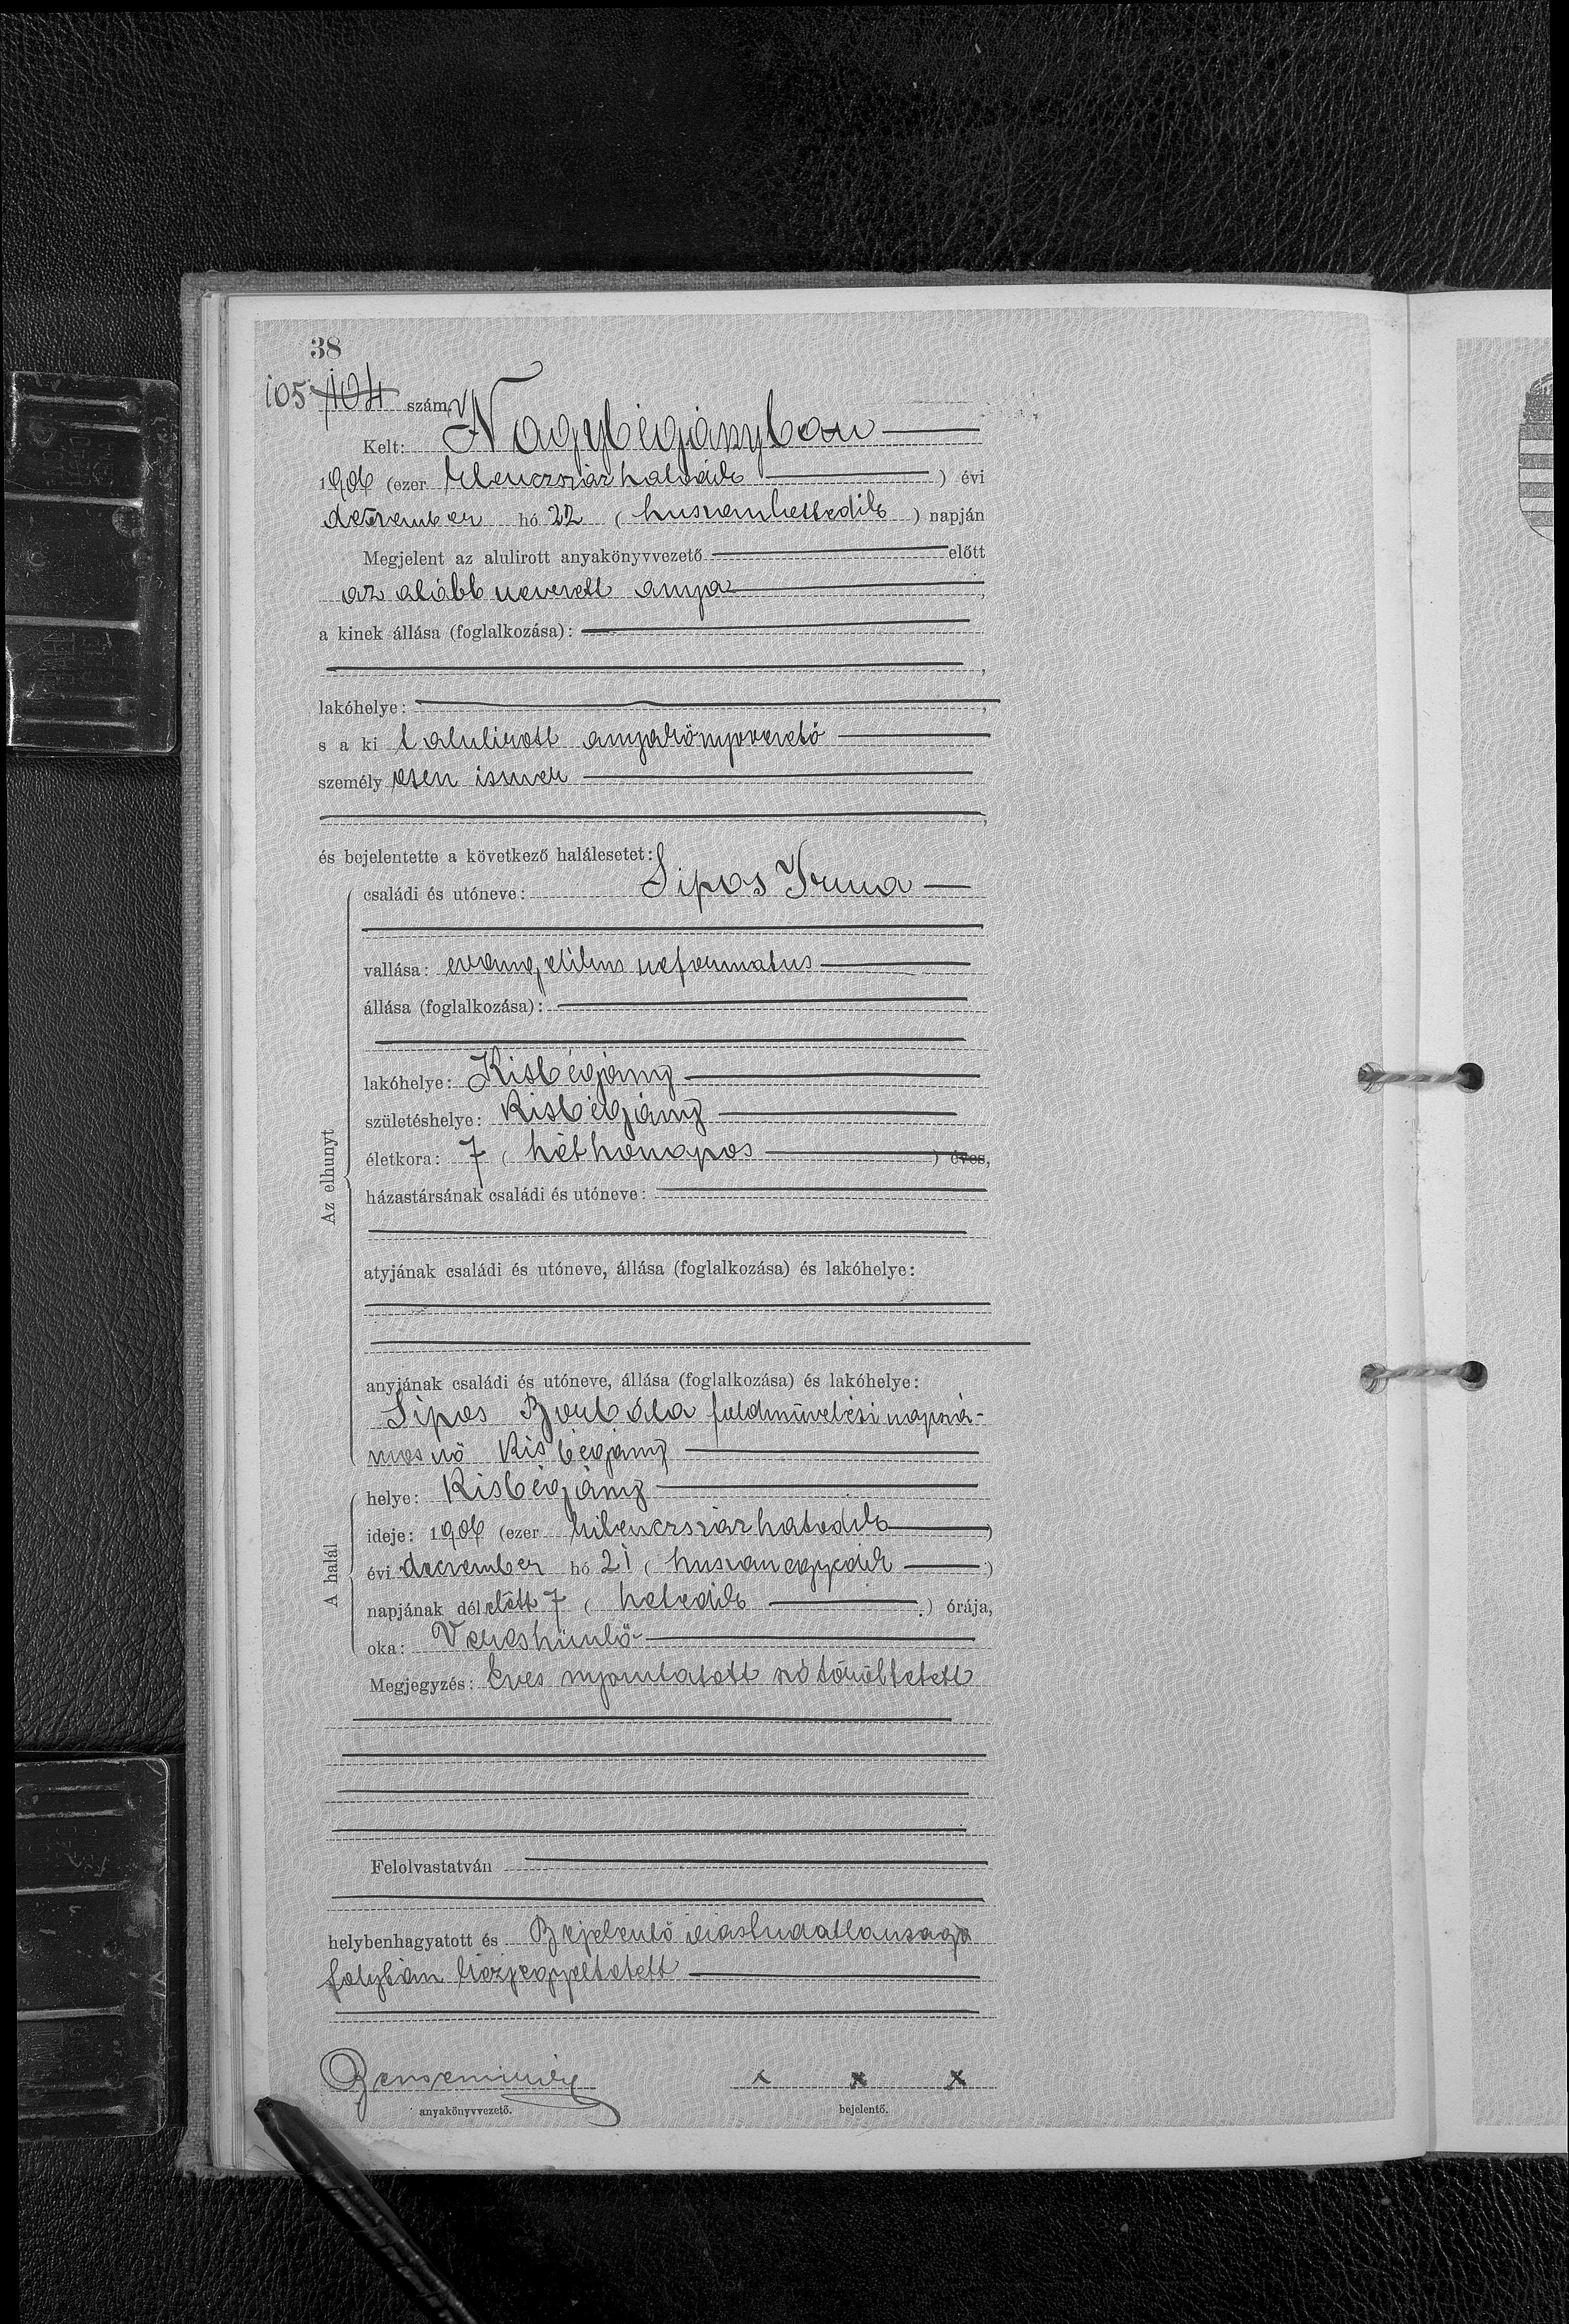 38
105 104 szám.
Kelt: Nagybégányban
1906 (ezer kilenczszáz hatodik ) évi
deczember hó 22 ( huszonkettedik ) napján
Megjelent az alulirott anyakönyvvezető előtt
az alább nevezett anya ,
a kinek állása (foglalkozása):
,
lakóhelye: ,
s a ki t alulirott anyakönyvvezető
személy esen ismer
,
és bejelentette a következő halálesetet:
családi és utóneve: Sipos Irma
vallása: evangelikus reformatus
állása (foglalkozása):
lakóhelye: Kisbégány
születéshelye: Kisbégány
életkora: 7 ( hét honapos ) éves,
házastársának családi és utóneve:
atyjának családi és utóneve, állása (foglalkozása) és lakóhelye:
Az elhunyt
anyjának családi és utóneve, állása (foglalkozása) és lakóhelye:
Sipos Borbála foldmüvelési napszá-
mos nö Kis bégány
helye: Kisbégány
ideje: 1906 (ezer kilenczszáz hatodik )
évi deczember hó 21 ( huszonegyedik )
napjának dél előtt 7 ( hetedik ) órája,
oka: Vereshimlö
A halál
Megjegyzés: Éves nyomtatott szó töröltetett
Felolvastatván
helybenhagyatott és Bejelentő irástudatlansága
folytán kézjegyeltetett
x x x
anyakönyvvezető. bejelentő.